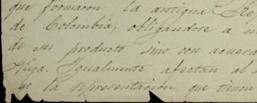 que formaron la antigua
de Colombia, obligandose a
de su producto sino con acuerdo
Igualmente afectan al
la representacion que tienen